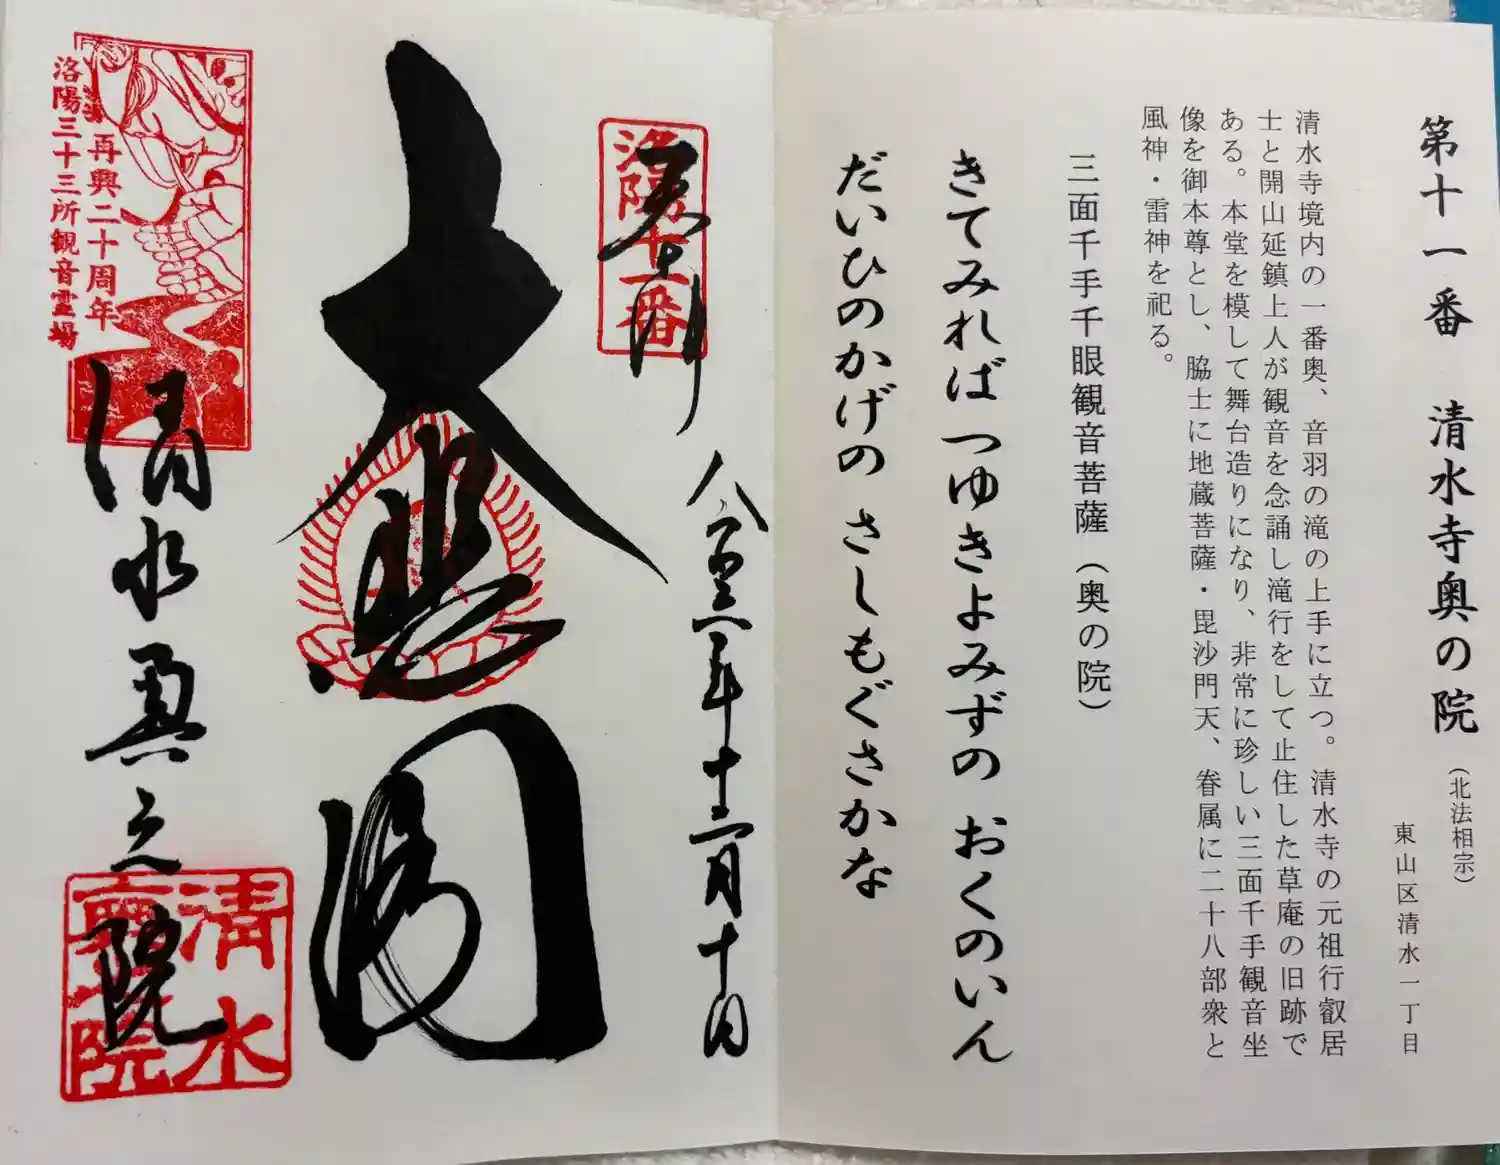 第十一番 清水寺奥の院
(北法相宗)
東山区清水一丁目
清水寺境内の一番奥、音羽の滝の上手に立つ。清水寺の元祖行叡居
士と開山延鎮上人が観音を念誦し滝行をして止住した草庵の旧跡で
ある。本堂を模して舞台造りになり、非常に珍しい三面千手観音坐
像を御本尊とし、脇士に地蔵菩薩・毘沙門天、眷属に二十八部衆と
風神・雷神を祀る。
三面千手千眼観音菩薩(奥の院)
きてみれば つゆきよみずの おくのいん
だいひのかげの さしもぐさかな
洛陽十一番
奉拝
年十二月十日
大悲閣
再興二十周年
洛陽三十三所観音霊場
清水奥之院
清水
奥之院